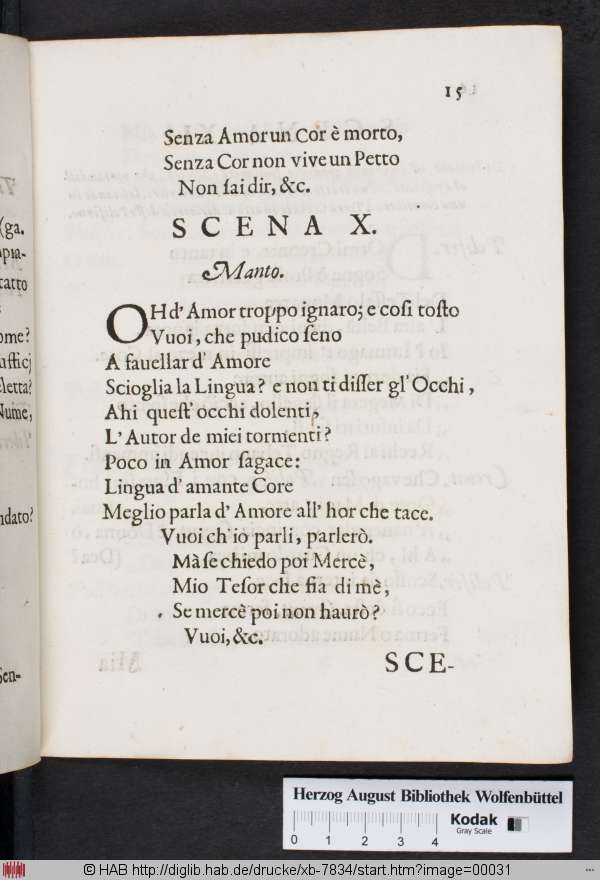 15
Senza Amor un Cor è morto,
Senza Cor non vive un Petto
Non ſai dir, &c.
SCENA X.
Manto.
OH d' Amor troppo ignaro; e coſi toſto
Vuoi, che pudico ſeno
A fauellar d' Amore
Scioglia la Lingua? e non ti diſſer gl' Occhi,
Ahi queſt' occhi dolenti,
L' Autor de miei tormenti?
Poco in Amor ſagace:
Lingua d' amante Core
Meglio parla d' Amore all' hor che tace.
Vuoi ch' io parli, parlerò.
Mà ſe chiedo poi Mercè,
Mio Teſor che fia di mè,
Se mercè poi non haurò?
Vuoi, &c.
SCE-
(ga.
tatto
ome?
letta?
Nume,
ndato?
Sen-
Herzog August Bibliothek Wolfenbüttel
0 1 2 3 4
Kodak
Gray Scale
C
© HAB http://diglib.hab.de/drucke/xb-7834/start.htm?image=00031